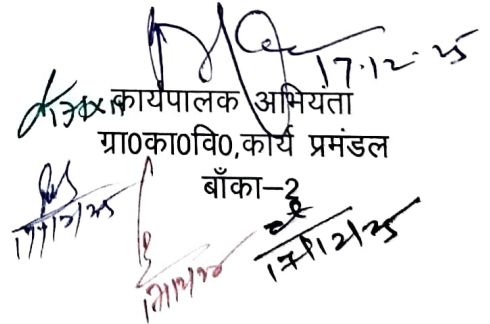 17.12.25
कार्यपालक अभियंता
ग्रा0का0वि0,कार्य प्रमंडल
बाँका-2
17/12/25
17/12/25
17/12/25